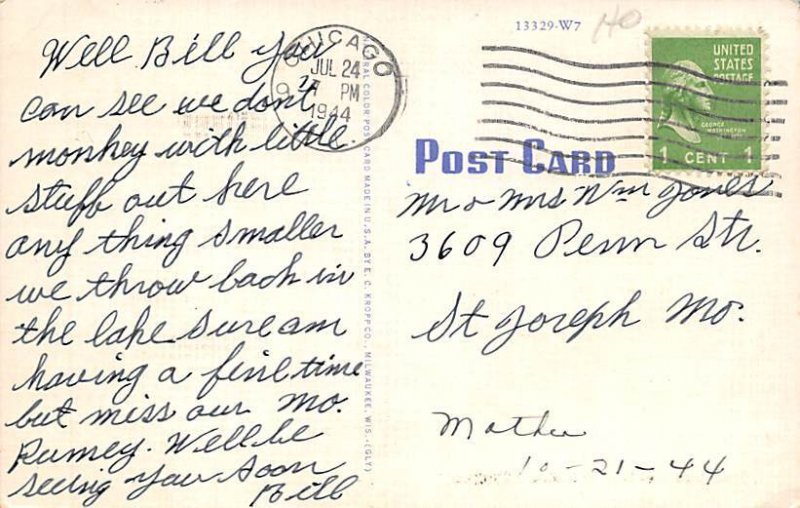 Well Bill you
can see we dont
monkey with little
stuff out here
any thing smaller
we throw back in
the lake Sure am
having a fine time
but miss our Mo.
Rumey. Well be
seeing you soon
Bill
CHICAGO
JUL 24
PM
1944
NATURAL COLOR POST CARD MADE IN U.S.A. BY E. C. KROPP CO., MILWAUKEE, WIS.-(GLY)
13329-W7
40
UNITED
STATES
POSTAGE
GEORGE
WASHINGTON
1 CENT 1
POST CARD
Mr & Mrs Wm Jones
3609 Penn Str.
St Joseph Mo.
Mother
10-21-44